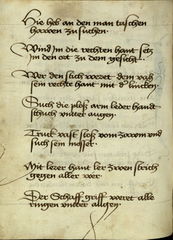 Hie heb an den man taschen
haween zu suchen
Wind Im die rechten hant setz
Im den ort zu dem gesicht
Wer den sich weret dem vach
sein rechte hant mit d lincken
Such die ploß arm leder handt
schuch unter augen
Truck vast stoß vom zoren und
such sein messer
Mit lerer hant ler zwen strich
gegen aller wer
Der Schaff griff weret alle
ringen unter augen